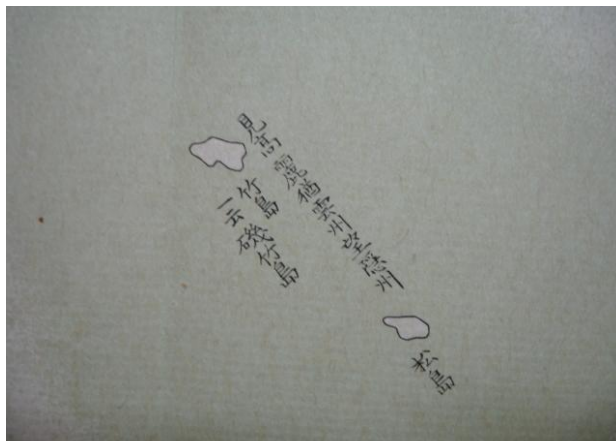 見高麗猶雲州望隠州
竹島
一云磯竹島
松島